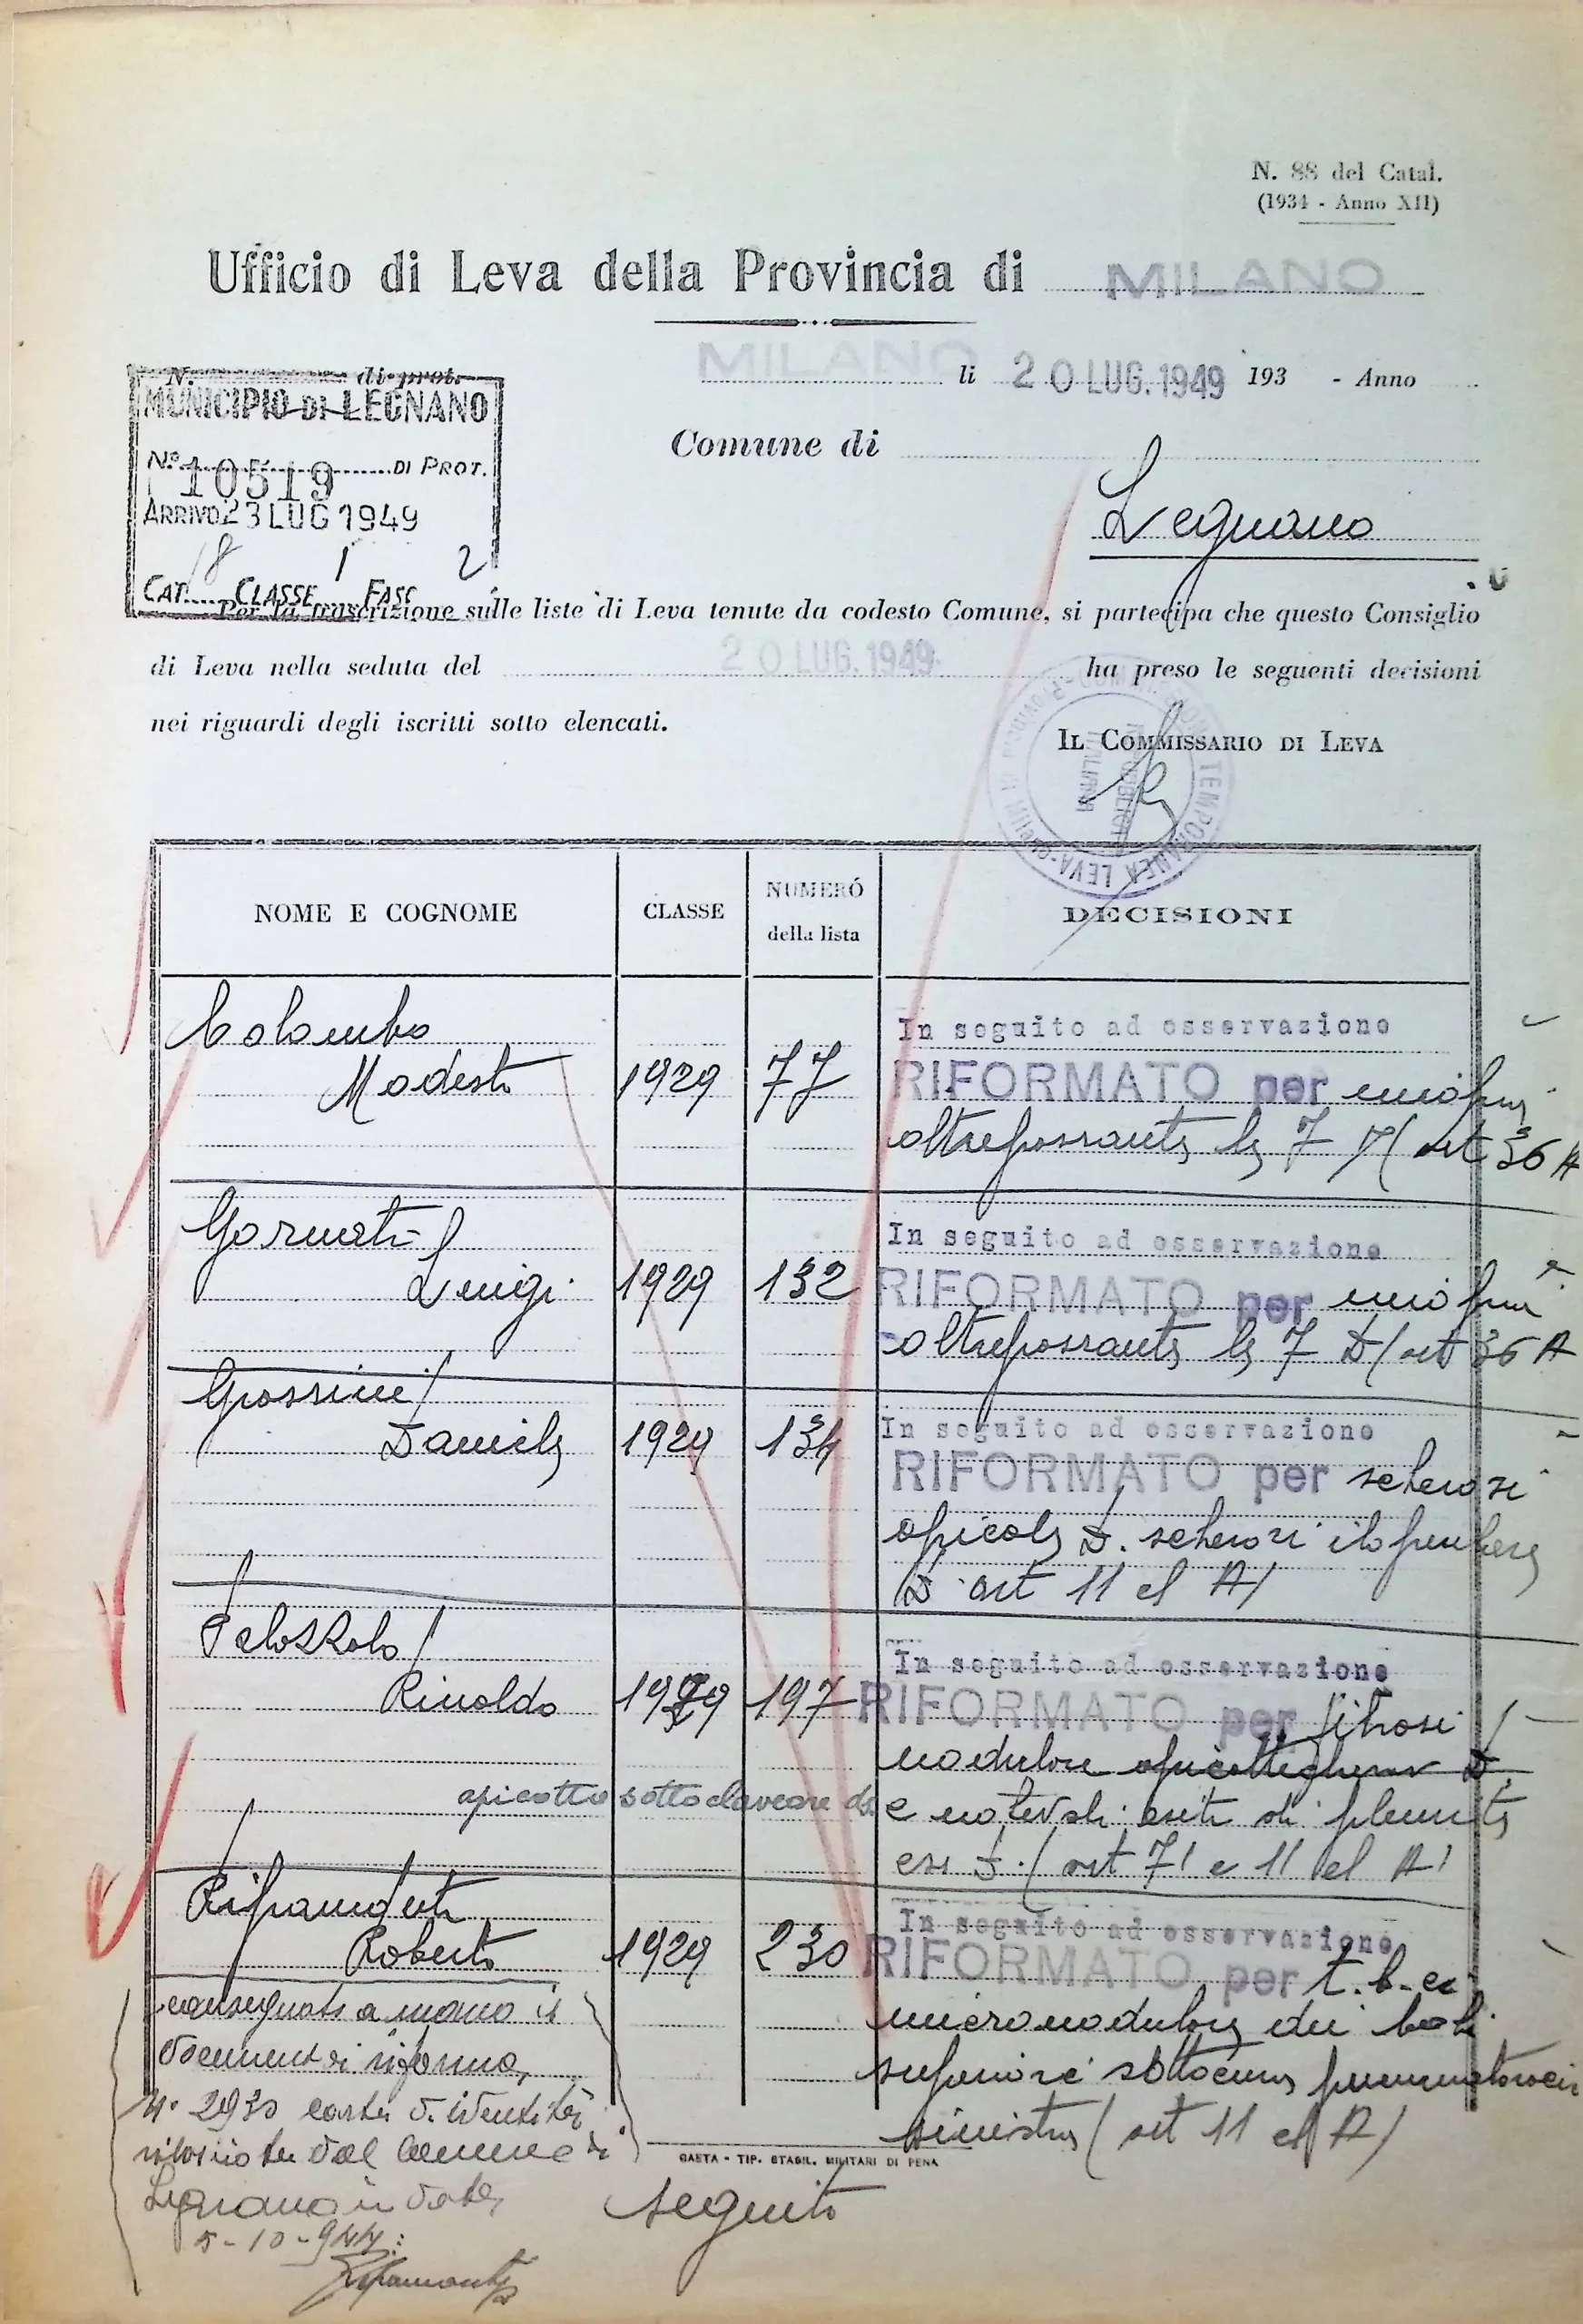 N. 88 del Catal.
(1934 - Anno XII)
Ufficio di Leva della Provincia di MILANO
MILANO li 20 LUG. 1949 193 - Anno
N. di prot.
MUNICIPIO DI LEGNANO
N.º 10519 DI PROT.
ARRIVO 23 LUG 1949
CAT. 8 CLASSE 1 FASC 2
Comune di
Legnano
Per la trascrizione sulle liste di Leva tenute da codesto Comune, si partecipa che questo Consiglio
di Leva nella seduta del 20 LUG. 1949 ha preso le seguenti decisioni
nei riguardi degli iscritti sotto elencati.
IL COMMISSARIO DI LEVA
NOME E COGNOME CLASSE NUMERO della lista DECISIONI
Colombo
Modesto 1929 77
In seguito ad osservazione
RIFORMATO per miopia
oltrepassante le 7 D (art 36 A
Gornati
Luigi 1929 132
In seguito ad osservazione
RIFORMATO per miopia
oltrepassante le 7 D (art 36 A
Grassini
Daniele 1929 134
In seguito ad osservazione
RIFORMATO per sclerosi
apicale D. sclerosi ilo
D art 11 el A)
Rinoldo 1929 197
In seguito ad osservazione
RIFORMATO per fibrosi
nodulare D.
apicetto sotto claveare ds e notevoli esiti di pleurite
D. (art 71 e 11 el A)
Ripamonti
Roberto 1929 230
In seguito ad osservazione
RIFORMATO per t.b.c.
micronodulare dei lobi
superiore sottocura pneumotorace
sinistra (art 11 el A)
consegnato a mano il
documento di riforma,
n° 2930 carta d'identità
rilasciata dal Comune di
Legnano in data
5-10-944:
Ripamonti
GAETA - TIP. STABIL. MILITARI DI PENA
seguito